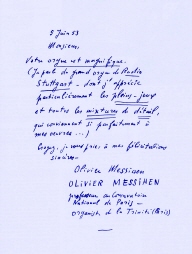 5 Juin 53
Monsieur,
Votre orgue est magnifique.
(Je parle du grand orgue de Radio
Stuttgart - dont j'apprécie
particulièrement les pleins-jeux
et toutes les mixtures de détail,
qui conviennent si parfaitement à
mes œuvres ...)
Croyez, je vous prie, à mes félicitations
sincères.
Olivier Messiaen
OLIVIER MESSIAEN
professeur au Conservatoire
National de Paris -
organiste de la Trinité (Paris)